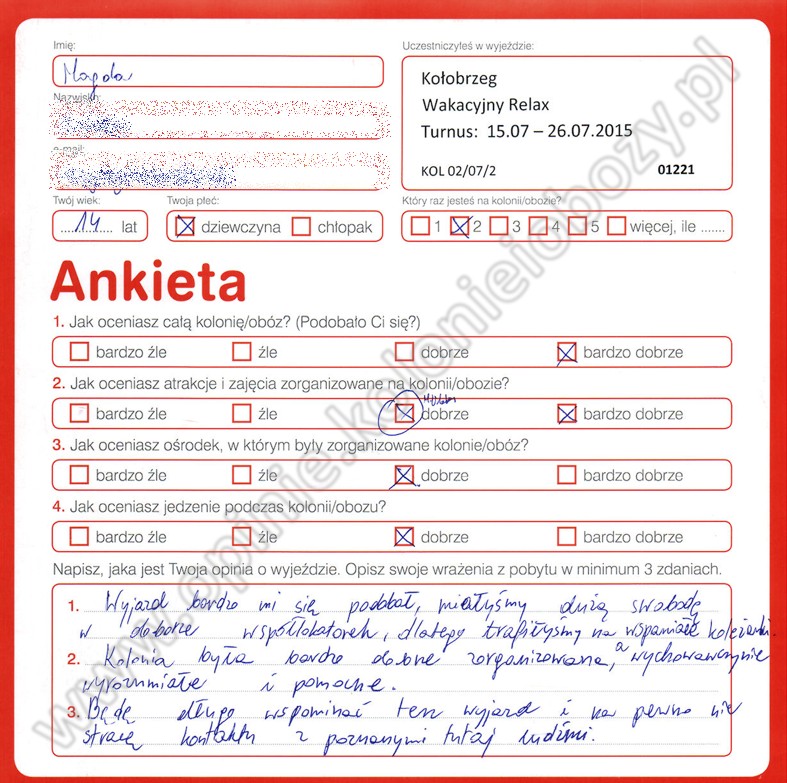 Imię:
Magda
Nazwisko:
e-mail:
Twój wiek:
14 lat
Twoja płeć:
dziewczyna chłopak
Uczestniczyłeś w wyjeździe:
Kołobrzeg
Wakacyjny Relax
Turnus: 15.07 – 26.07.2015
KOL 02/07/2 01221
Który raz jesteś na kolonii/obozie?
1 2 3 4 5 więcej, ile .......
Ankieta
1. Jak oceniasz całą kolonię/obóz? (Podobało Ci się?)
bardzo źle źle dobrze bardzo dobrze
2. Jak oceniasz atrakcje i zajęcia zorganizowane na kolonii/obozie?
bardzo źle źle dobrze bardzo dobrze
3. Jak oceniasz ośrodek, w którym były zorganizowane kolonie/obóz?
bardzo źle źle dobrze bardzo dobrze
4. Jak oceniasz jedzenie podczas kolonii/obozu?
bardzo źle źle dobrze bardzo dobrze
Napisz, jaka jest Twoja opinia o wyjeździe. Opisz swoje wrażenia z pobytu w minimum 3 zdaniach.
1. Wyjazd bardzo mi się podobał, miałyśmy dużą swobodę
w doborze współlokatorek, dlatego trafiłyśmy na wspaniałe koleżanki.
2. Kolonia była bardzo dobrze zorganizowana, a wychowawczynie
wyrozumiałe i pomocne.
3. Będę długo wspominać ten wyjazd i na pewno nie
stracę kontaktu z poznanymi tutaj ludźmi.
www.opinie.kolonieiobozy.pl